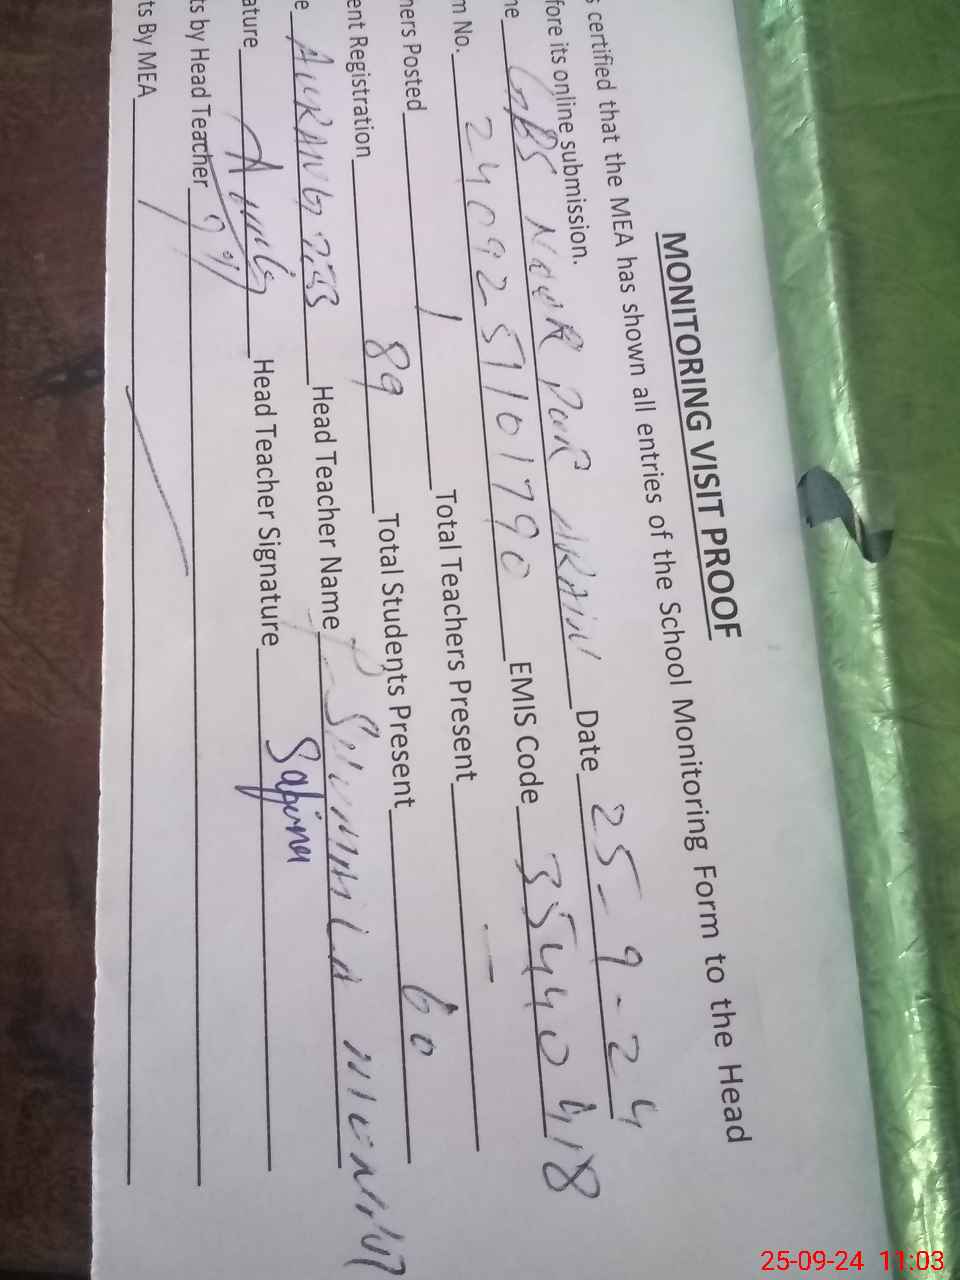 MONITORING VISIT PROOF
s certified that the MEA has shown all entries of the School Monitoring Form to the Head
fore its online submission.
me GBS Noor Date 25-9-24
m No. 2409251101790 EMIS Code 35440418
hers Posted 1 Total Teachers Present -
ent Registration 89 Total Students Present 60
e AURANG Head Teacher Name
ature Head Teacher Signature Sabina
ts by Head Teacher
ts By MEA
25-09-24 11:03